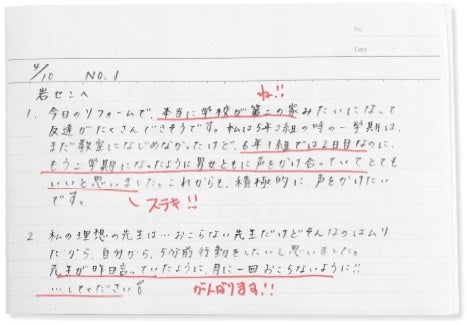 No.
Date
4/10 NO.1
岩センへ
ね!!
1. 今日のリフォームで、本当に学校が第二の家みたいになって
友達がたくさんできそうです。私は5年3組の時の一学期は、
まだ教室になじめなかったけど、6年1組では2日目なのに、
もう二学期になったように男女ともに声をかけ合っていてとても
いいと思いました。これからも、積極的に、声をかけたい
です。
ステキ!!
2. 私の理想の先生は…おこらない先生だけどそんなのはムリ
だから、自分から、5分前行動をしたいと思いました。
先生が昨日言っていたように、月に一回おこらないように!!
…してください
がんばります!!